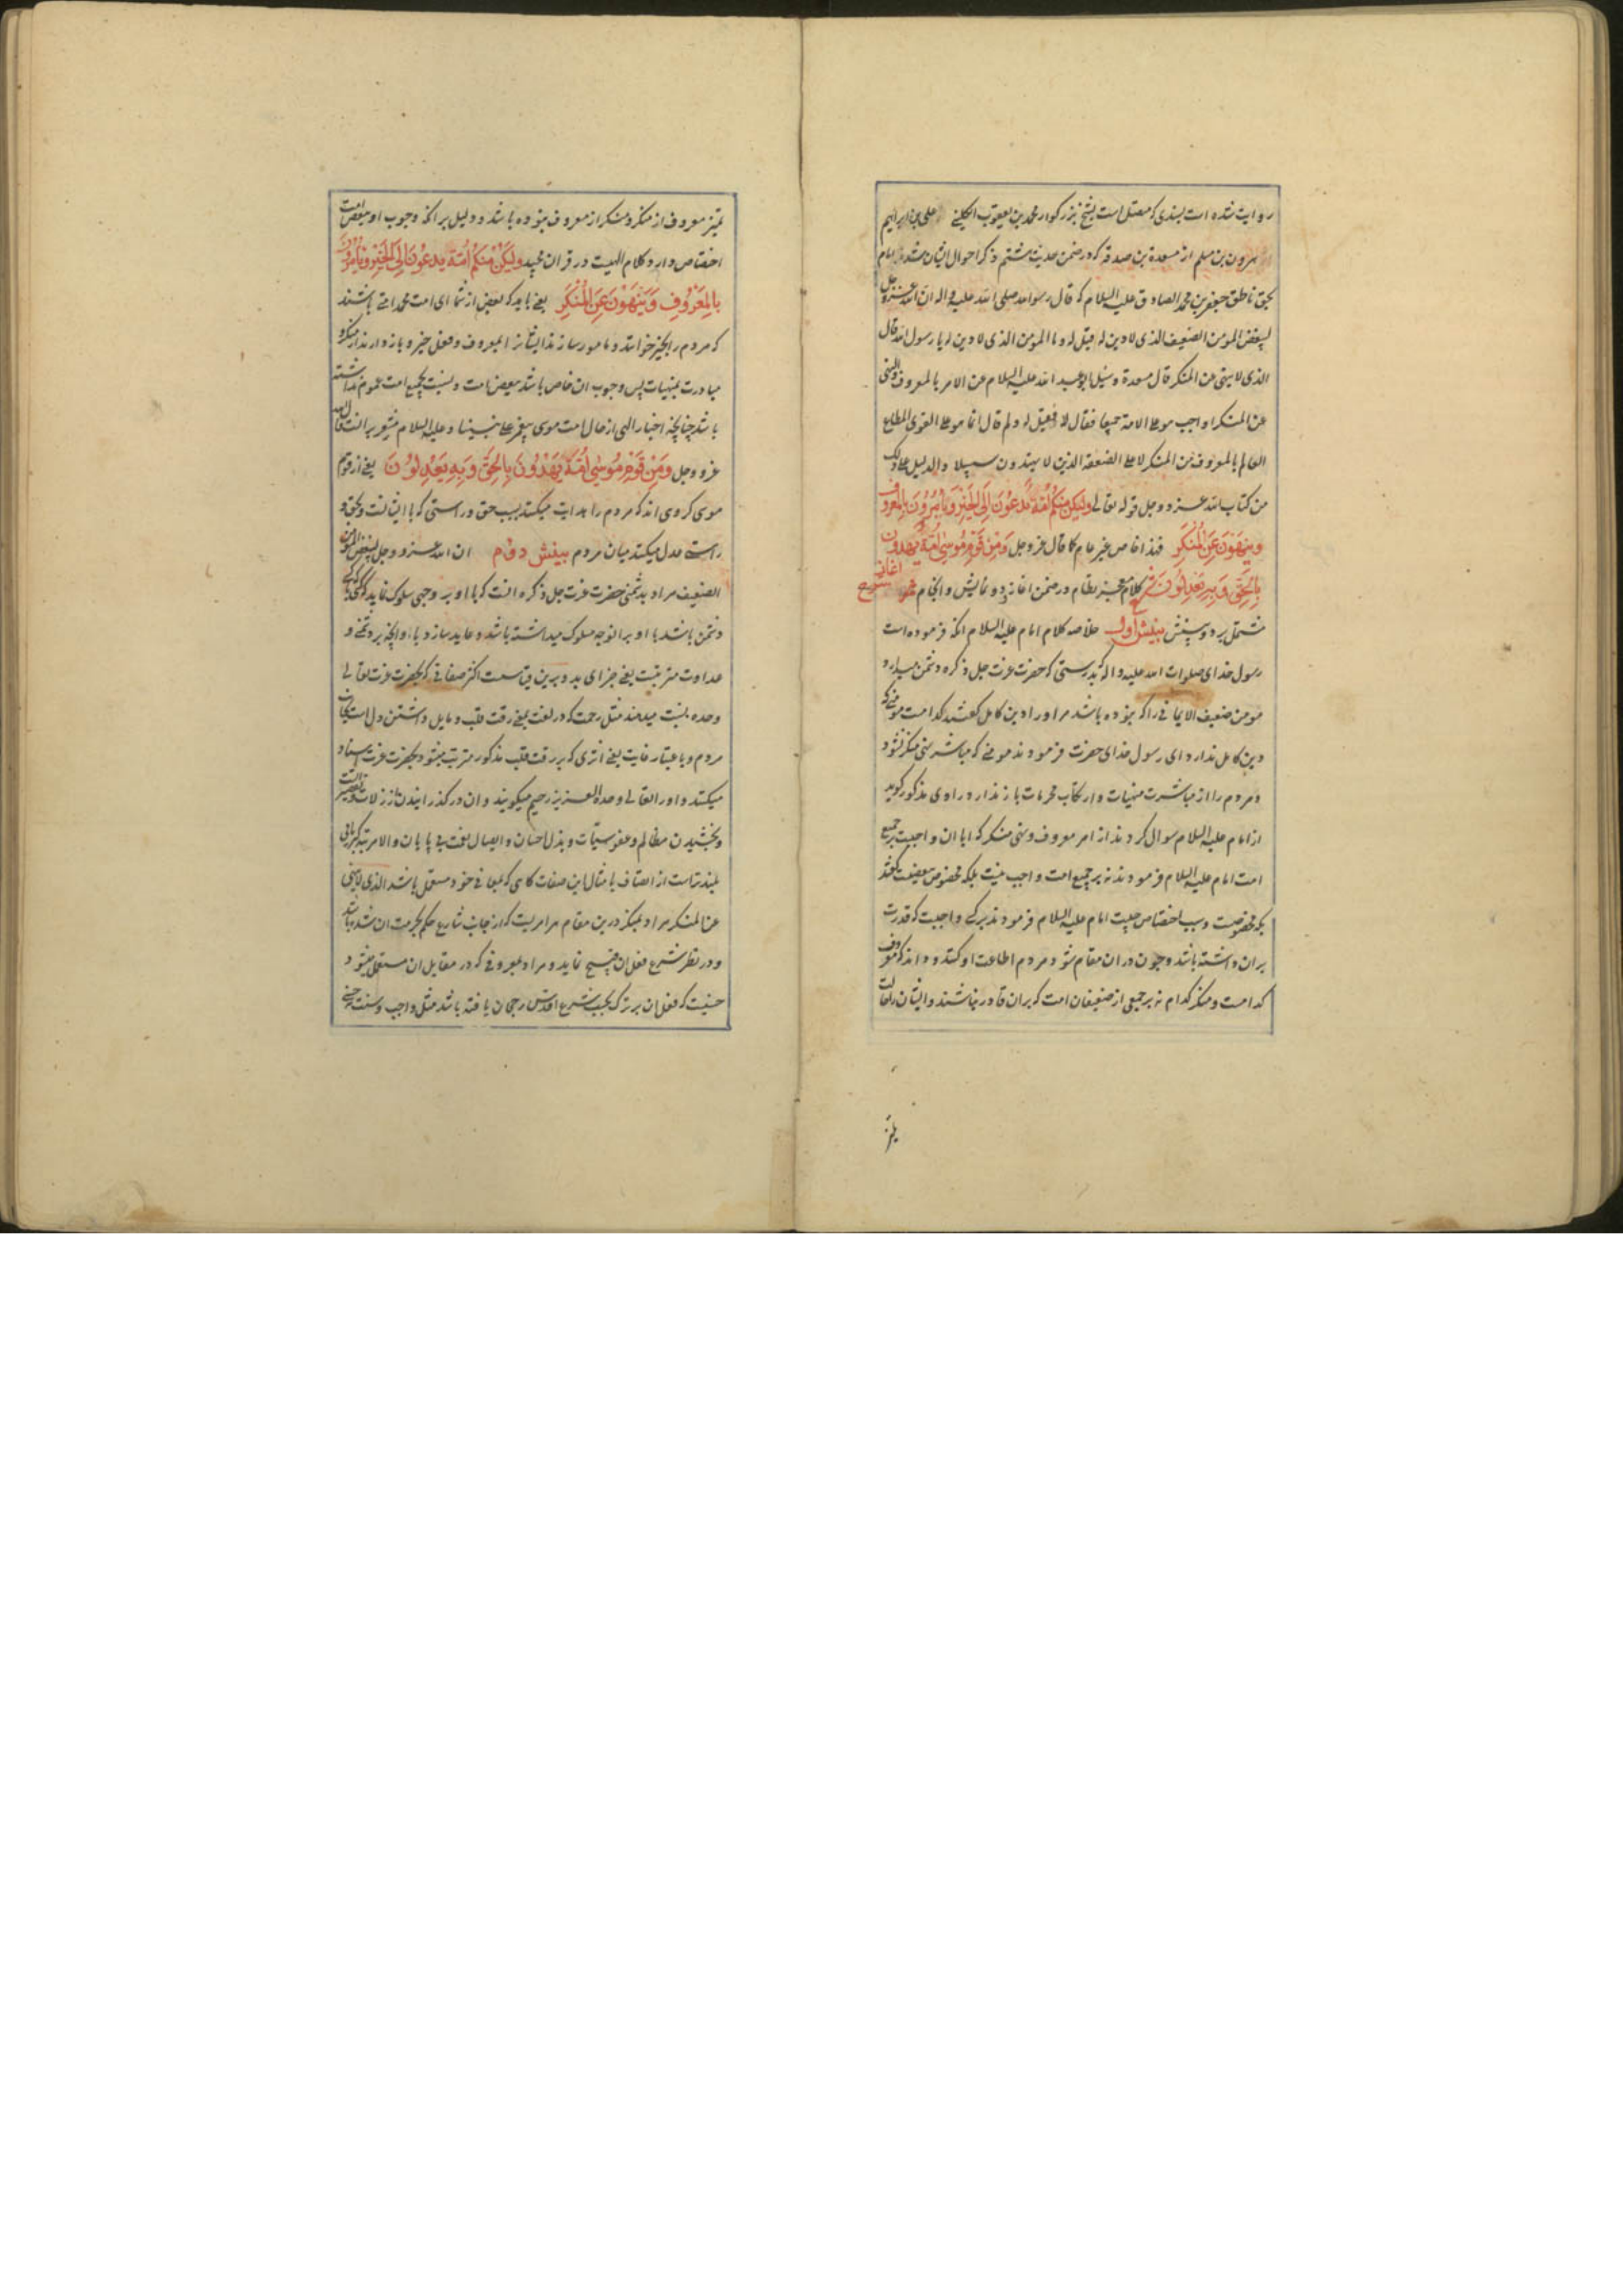 روایت شده است بسندی که متصل است بشیخ بزرکوار محمد بن یعقوب الکلینی علی بن ابراهیم
هرون بن مسلم از مسعدة بن صدقه که در ضمن حدیث ششم ذکر احوال ایشان شد از امام
بحق ناطق جعفر بن محمد الصادق علیه السلام که قال رسول الله صلی الله علیه و اله ان الله عز و جل
لیبغض المومن الضعیف الذی لا دین له فقیل له و ما المومن الذی لا دین له یا رسول الله قال
الذی لا ینهی عن المنکر قال مسعدة و سئل ابو عبد الله علیه السلام عن الامر بالمعروف و النهی
عن المنکر اواجب هو علی الامة جمیعا فقال لا فقیل له و لم قال انما هو علی القوی المطاع
العالم بالمعروف من المنکر لا علی الضعفة الذین لا یهتدون سبیلا و الدلیل علی ذلک
من کتاب الله عز و جل قوله تعالی ولتکن منکم امة یدعون الی الخیر و یامرون بالمعروف
وینهون عن المنکر فهذا خاص غیر عام کما قال عز و جل وَمِن قَوْمِ مُوسٰی اُمَّةٌ یَهْدُونَ
بِالْحَقِّ وَبِهِ یَعْدِلُونَ شرح کلام معجز نظام در ضمن اغاز و دو نمایش و انجام
مشتمل بر دو بینش بینش اول خلاصه کلام امام علیه السلام انکه فرموده است
رسول خدای صلوات الله علیه و اله که بدرستی که حضرت عزت جل ذکره دشمن میدارد
مومن ضعیف الایمانی را که نبوده باشد مر او را دین کامل کفتند کدامست مومنی که
دین کامل ندارد ای رسول خدای حضرت فرمودند مومنی که مباشر نهی منکر نشود
و مردم را از مباشرت منهیات و ارتکاب محرمات باز ندارد و راوی مذکور کوید
از امام علیه السلام سوال کردند از امر معروف و نهی منکر که ایا ان واجبست بر جمیع
امت امام علیه السلام فرمودند نه بر جمیع امت واجب نیست بلکه مخصوص بعضیست کفتند
بکه مخصوصست و سبب اختصاص چیست امام علیه السلام فرمودند بر کسی واجبست که قدرت
بران داشته باشد و چون دران مقام شود مردم اطاعت او کنند و داند که معروف
کدامست و منکر کدام نه بر جمعی از ضعیفان امت که بران قادر نباشند و ایشان را حالت
تمیز معروف از منکر و منکر از معروف نبوده باشد و دلیل بر انکه وجوب او ببعض امت
اختصاص دارد کلام الهیست در قران مجید ولتکن منکم امة یدعون الی الخیر و یامرون
بالمعروف وینهون عن المنکر یعنی باید که بعضی از شما ای امت محمد امتی باشند
که مردم را بخیر خوانند و مامور سازند ایشانرا بمعروف و فعل خیر و باز دارند از منکر و
مبادرت بمنهیات پس وجوب ان خاص باشد ببعض امت و نسبت بجمیع امت عموم نداشته
باشد چنانچه اخبار الهی از حال امت موسی پیغمبر علی نبینا و علیه السلام مشعر بر انست قال الله
عز و جل وَمِنْ قَوْمِ مُوسٰی اُمَّةٌ یَهْدُونَ بِالْحَقِّ وَبِهِ یَعْدِلُونَ یعنی از قوم
موسی کروهی اند که مردم را هدایت میکنند بسبب حق و راستی که با ایشانست و بحق و
راستی عدل میکنند میان مردم بینش دوم ان الله عز و جل لیبغض المومن
الضعیف مراد بدشمنی حضرت عزت جل ذکره انست که با او بر وجهی سلوک نماید که کسی که
دشمن باشد با او بر انوجه سلوک میداشته باشد و عاید سازد باو انچه بر دشمنی و
عداوت مترتبست یعنی جزای بد و برین قیاست اکثر صفاتی که بحضرت عزت تعالی
وحده نسبت میدهند مثل رحمت که در لغت بمعنی رقت قلب و مایل داشتن دل است بجانب
مردم و باعتبار غایت یعنی اثری که بر رقت قلب مذکور مترتب میشود بحضرت عزت اسناد
میکنند و او را تعالی وحده العزیز رحیم میکویند و ان در کذرانیدن از زلات و تقصیرات
و بخشیدن مظالم و عفو سیئات و بذل احسان و ایصال نعمت بی پایان و الا مرتبه کبریائی
بلندتر است از اتصاف بامثال این صفات کاهی که بمعانی خود مستعمل باشد الذی لا ینهی
عن المنکر مراد بمنکر درین مقام هر امریست که از جانب شارع حکم بحرمت ان شده باشد
و در نظر شرع فعل ان قبیح نماید و مراد بمعروفی که در مقابل ان مستعمل میشود
حسنیست که فعل ان بر ترک بحسب شرع اقدس رجحان یافته باشد مثل واجب و سنت